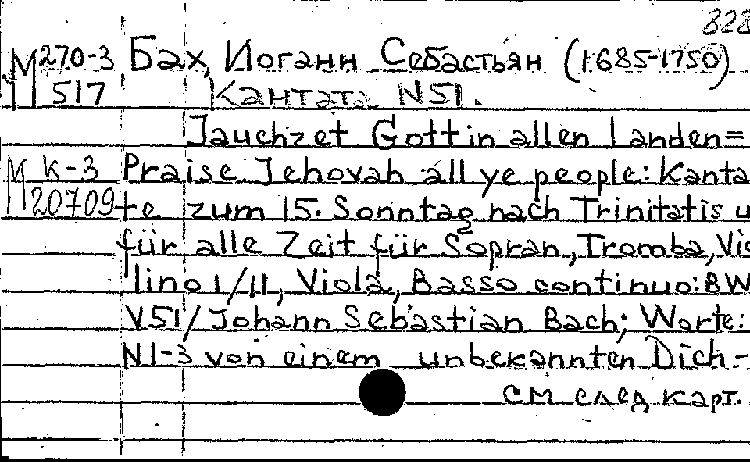 828
М270-3 Бах, Иоганн Себастьян (1685-1750)
517 Кантата N51.
Jauchzet Gott in allen Landen=
М К-3 Praise Jehovah all ye people: Kanta
20709 te zum 15. Sonntag nach Trinitatis u
für alle Zeit für Sopran, Tromba, Vio
lino I/II, Viola, Basso continuo: BW
V51/Johann Sebastian Bach; Worte:
N1-3 von einem unbekannten Dich-
см след карт.